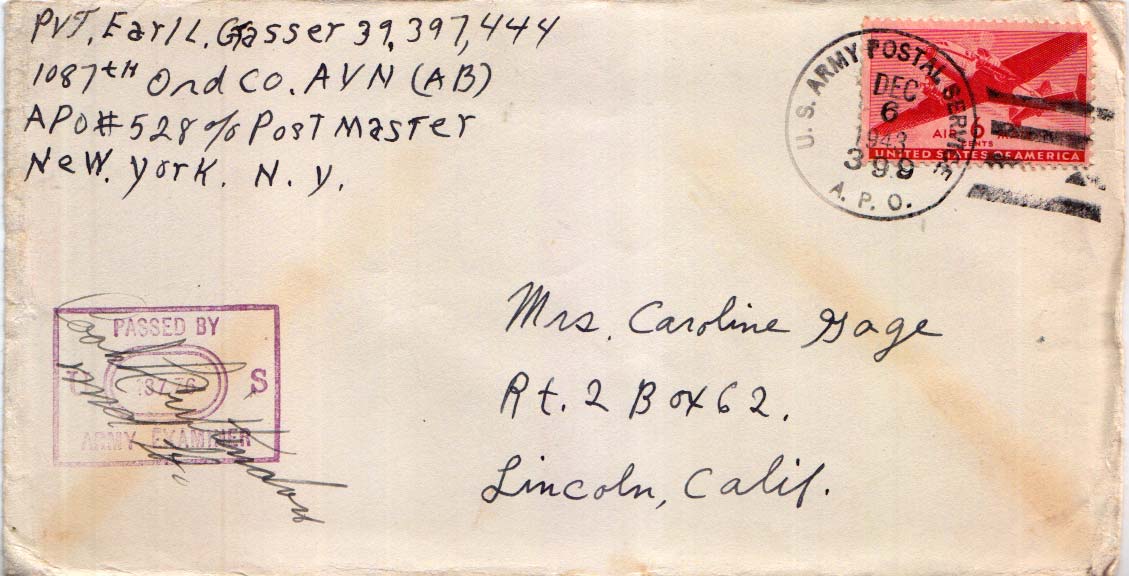 PVT. Earl L. Gasser 39,397,444
1087th Ord Co. AVN (AB)
APO # 528 c/o Post Master
New. York. N. Y.
U. S. ARMY POSTAL SERVICE
DEC
6
1943
399
A. P. O.
AIR 6
CENTS
UNITED STATES OF AMERICA
Mrs. Caroline Gage
Rt. 2 Box 62.
Lincoln, Calif.
PASSED BY
U S
ARMY EXAMINER